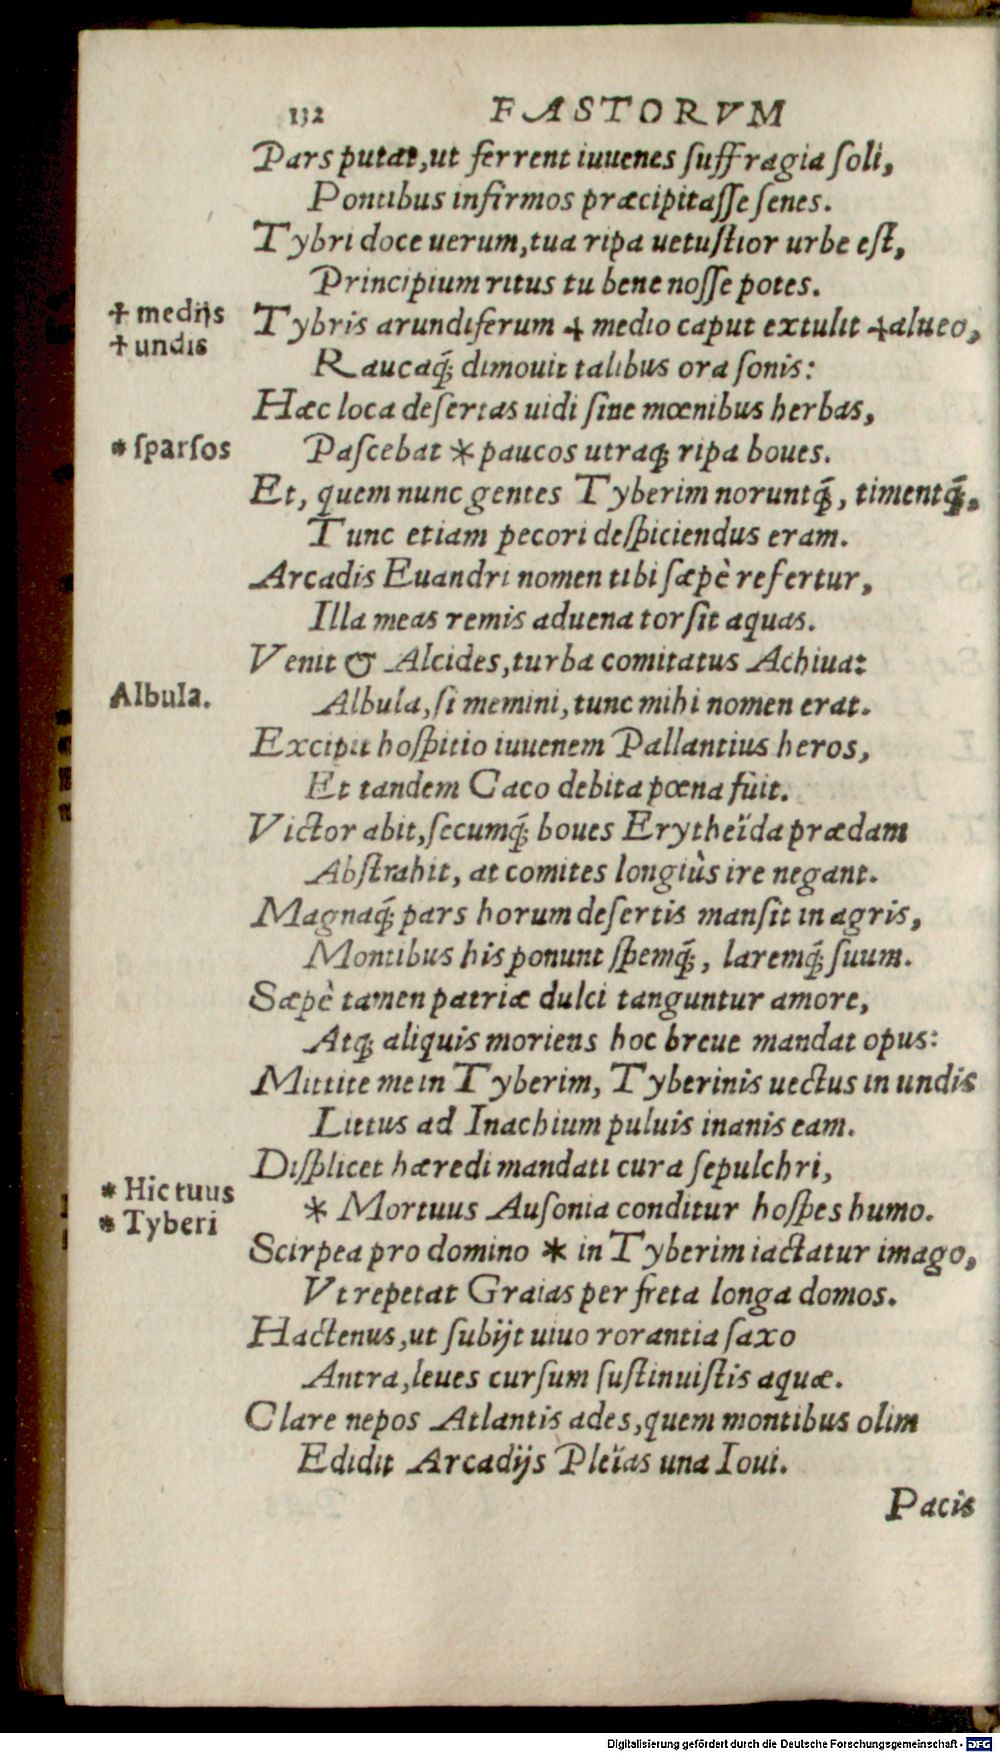 132 FASTORVM
Pars putat, ut ferrent iuuenes ſuffragia ſoli,
Pontibus infirmos præcipitaſſe ſenes.
Tybri doce uerum, tua ripa uetuſtior urbe eſt,
Principium ritus tu bene noſſe potes.
✝ medijs
Tybris arundiferum ✝ medio caput extulit ✝ alueo,
✝ undis
Raucaq́; dimouit talibus ora ſonis:
Hæc loca deſertas uidi ſine mœnibus herbas,
* ſparſos
Paſcebat * paucos utraq; ripa boues.
Et, quem nunc gentes Tyberim noruntq́;, timentq́;,
Tunc etiam pecori deſpiciendus eram.
Arcadis Euandri nomen tibi ſæpè refertur,
Illa meas remis aduena torſit aquas.
Venit & Alcides, turba comitatus Achiua:
Albula.
Albula, ſi memini, tunc mihi nomen erat.
Excipit hoſpitio iuuenem Pallantius heros,
Et tandem Caco debita pœna fuit.
Victor abit, ſecumq́; boues Erytheïda prædam
Abſtrahit, at comites longiùs ire negant.
Magnaq́; pars horum deſertis manſit in agris,
Montibus his ponunt ſpemq́;, laremq́; ſuum.
Sæpè tamen patriæ dulci tanguntur amore,
Atq; aliquis moriens hoc breue mandat opus:
Mittite me in Tyberim, Tyberinis uectus in undis
Littus ad Inachium puluis inanis eam.
Diſplicet hæredi mandati cura ſepulchri,
* Hic tuus
* Mortuus Auſonia conditur hoſpes humo.
* Tyberi
Scirpea pro domino * in Tyberim iactatur imago,
Vt repetat Graias per freta longa domos.
Hactenus, ut ſubijt uiuo rorantia ſaxo
Antra, leues curſum ſuſtinuiſtis aquæ.
Clare nepos Atlantis ades, quem montibus olim
Edidit Arcadijs Pleïas una Ioui.
Pacis
Digitalisierung gefördert durch die Deutsche Forschungsgemeinschaft - DFG